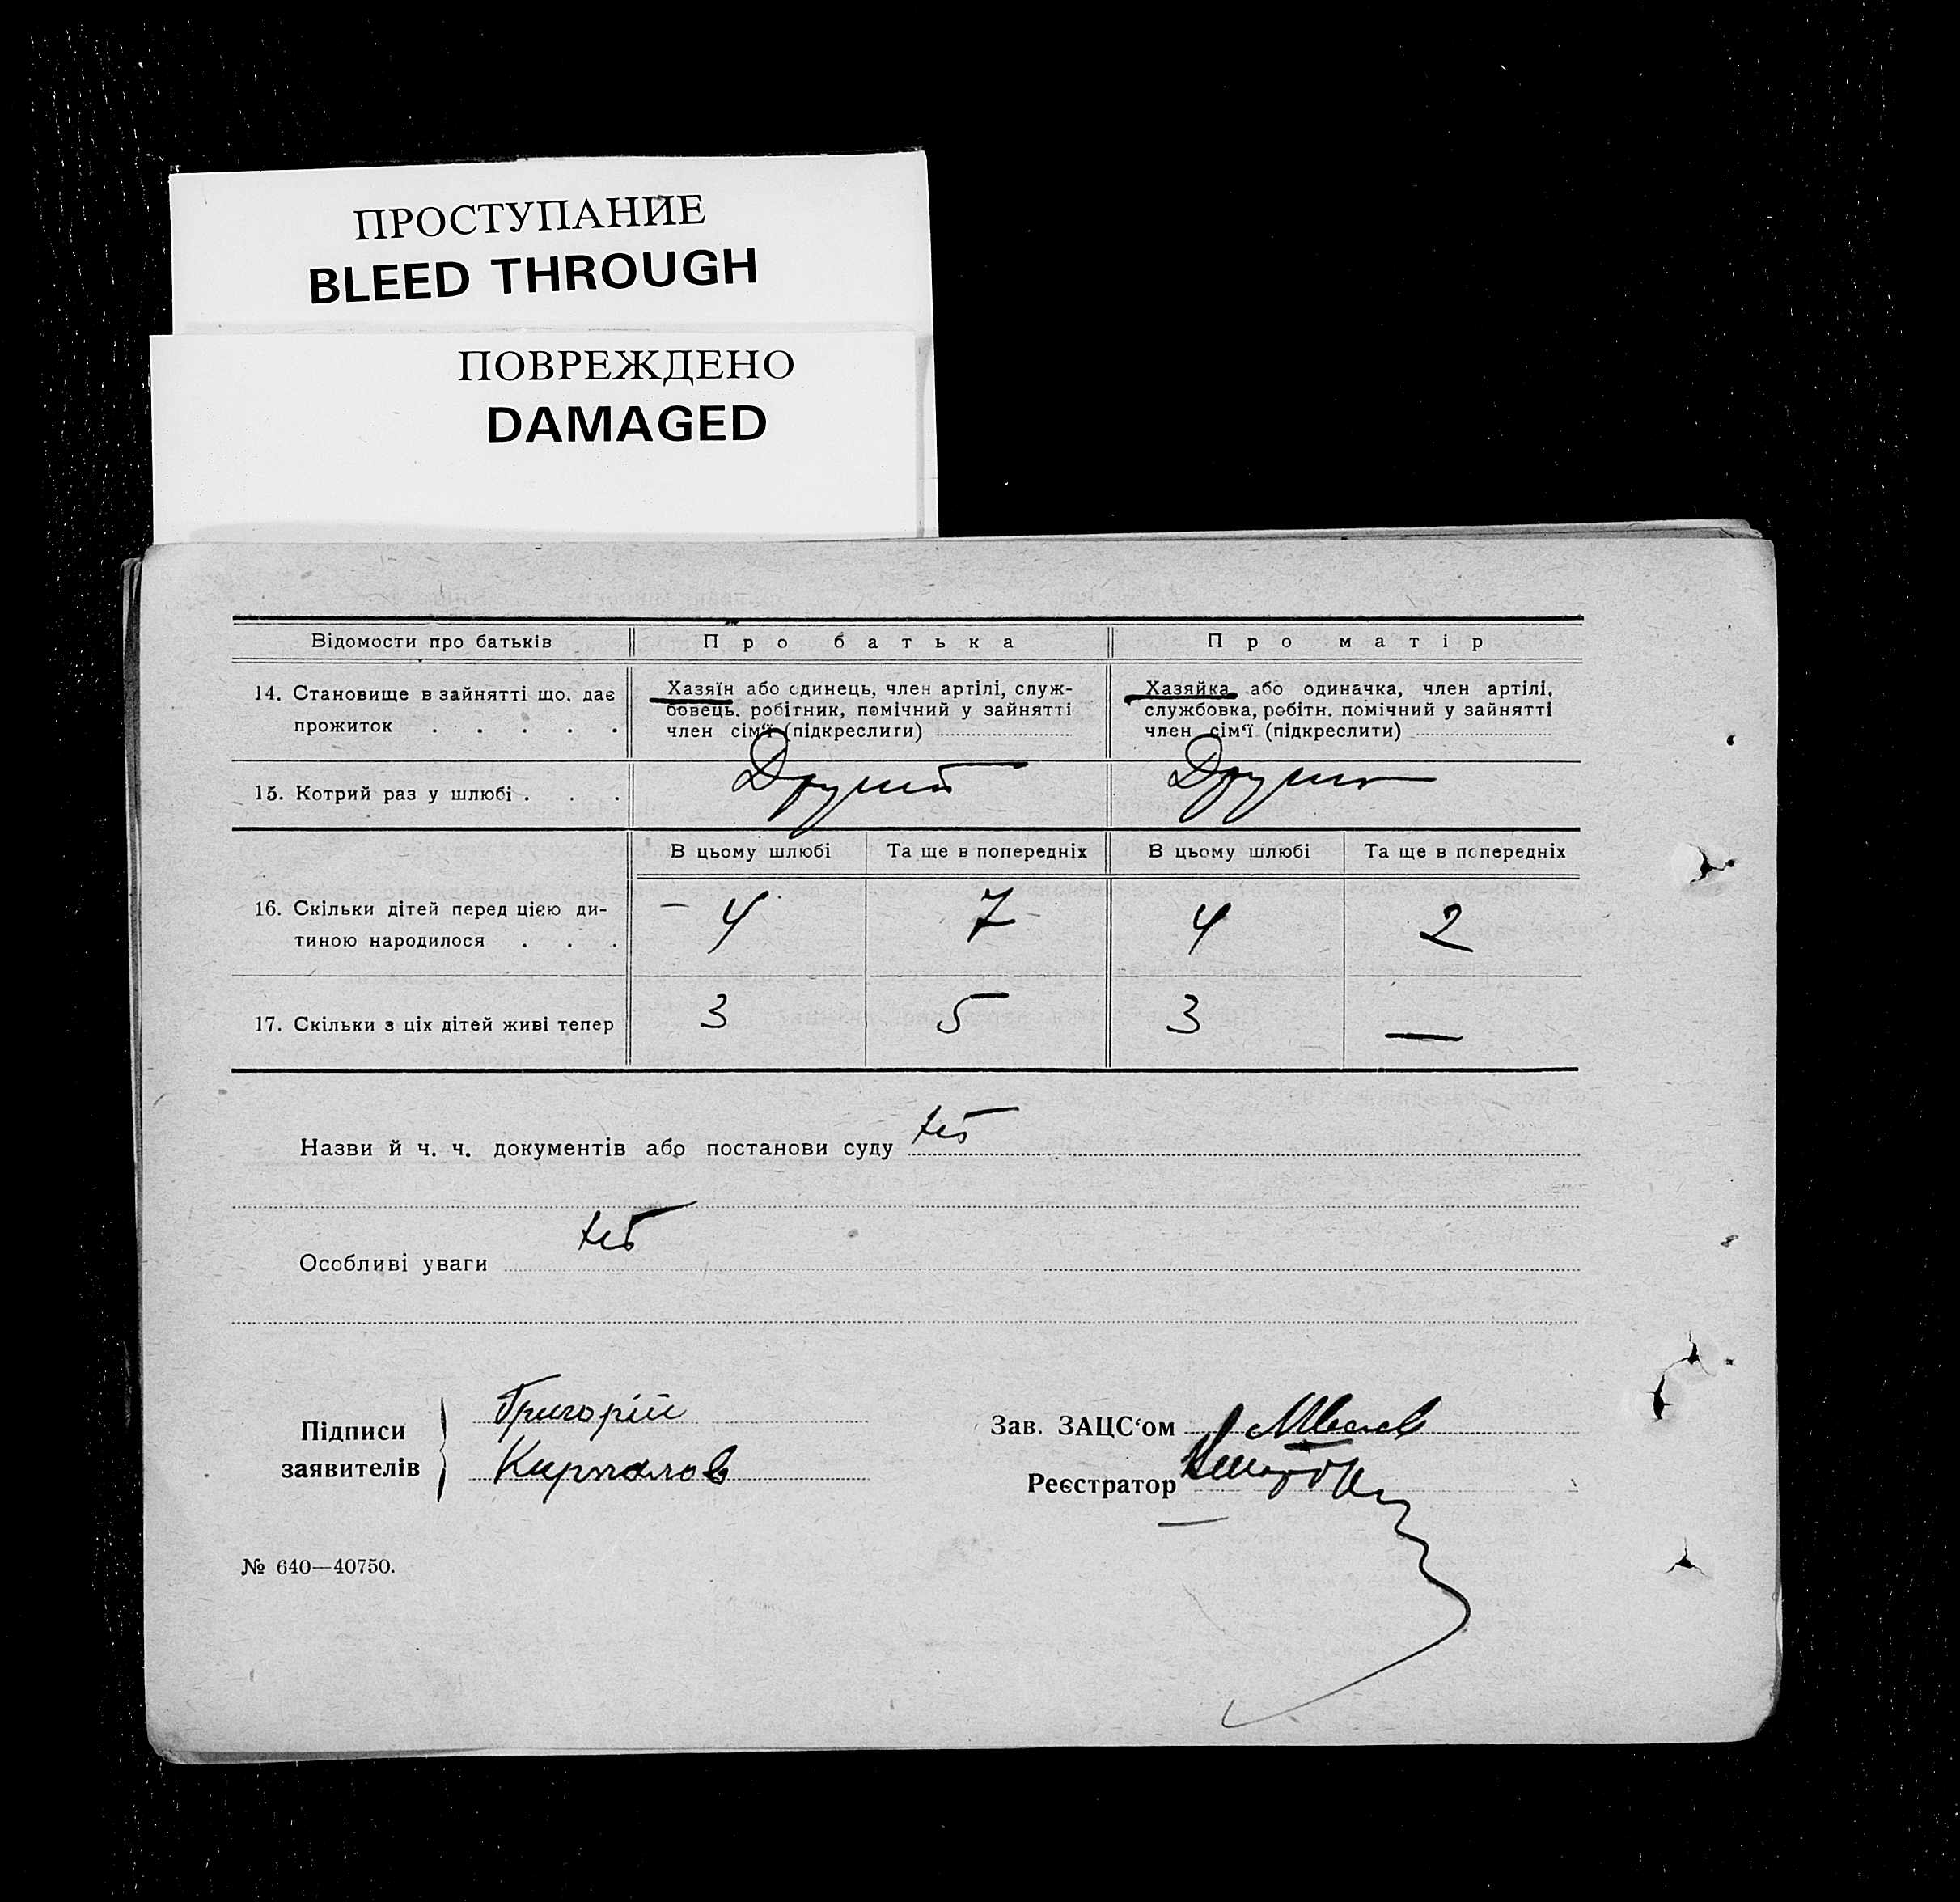 ПРОСТУПАНИЕ
BLEED THROUGH
ПОВРЕЖДЕНО
DAMAGED
Відомости про батьків
Про батька
Про матір
14. Становище в зайнятті що, дає
прожиток . . . . .
Хазяїн або одинець, член артілі, служ-
бовець. робітник, помічний у зайнятті
член сім'ї (підкреслиги)
Хазяйка або одиначка, член артілі,
службовка, робітн. помічний у зайнятті
член сім'ї (підкреслити)
15. Котрий раз у шлюбі . . .
Другий
Друга
В цьому шлюбі
Та ще в попередніх
В цьому шлюбі
Та ще в попередніх
16. Скільки дітей перед цією ди-
тиною народилося . . .
4
7
4
2
17. Скільки з ціх дітей живі тепер
3
5
3
—
Назви й ч. ч. документів або постанови суду
Особливі уваги
Підписи
заявителів
Григорій
Зав. ЗАЦС'ом
Реєстратор
№ 640—40750.